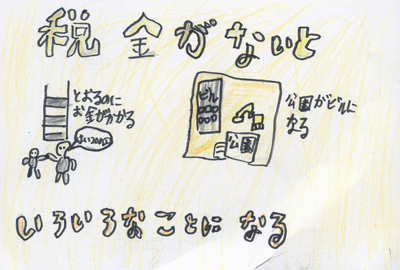 税金がないと
とおるのに
お金がかかる
ビル
公園
公園がビルに
なる
いろいろなことになる